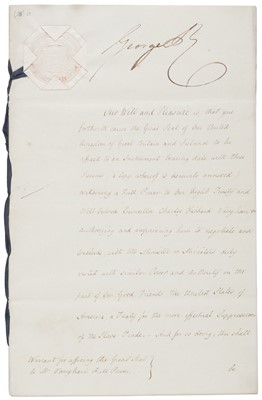 George R
Our Will and Pleasure is that you
forthwith cause the Great Seal of Our United
Kingdom of Great Britain and Ireland to be
affixed to an Instrument bearing date with these
Presents a Copy whereof is hereunto annexed
containing a Full Power to Our Right Trusty and
Well beloved Councillor Charles Richard Vaughan
authorizing and empowering him to negotiate and
conclude with the Minister or Ministers duly
vested with similar Power and Authority on the
part of Our Good Friends The United States of
America a Treaty for the more effectual Suppression
of the Slave Trade. And for so doing, this shall
be
Warrant for affixing the Great Seal
to Mr Vaughan's Full Power